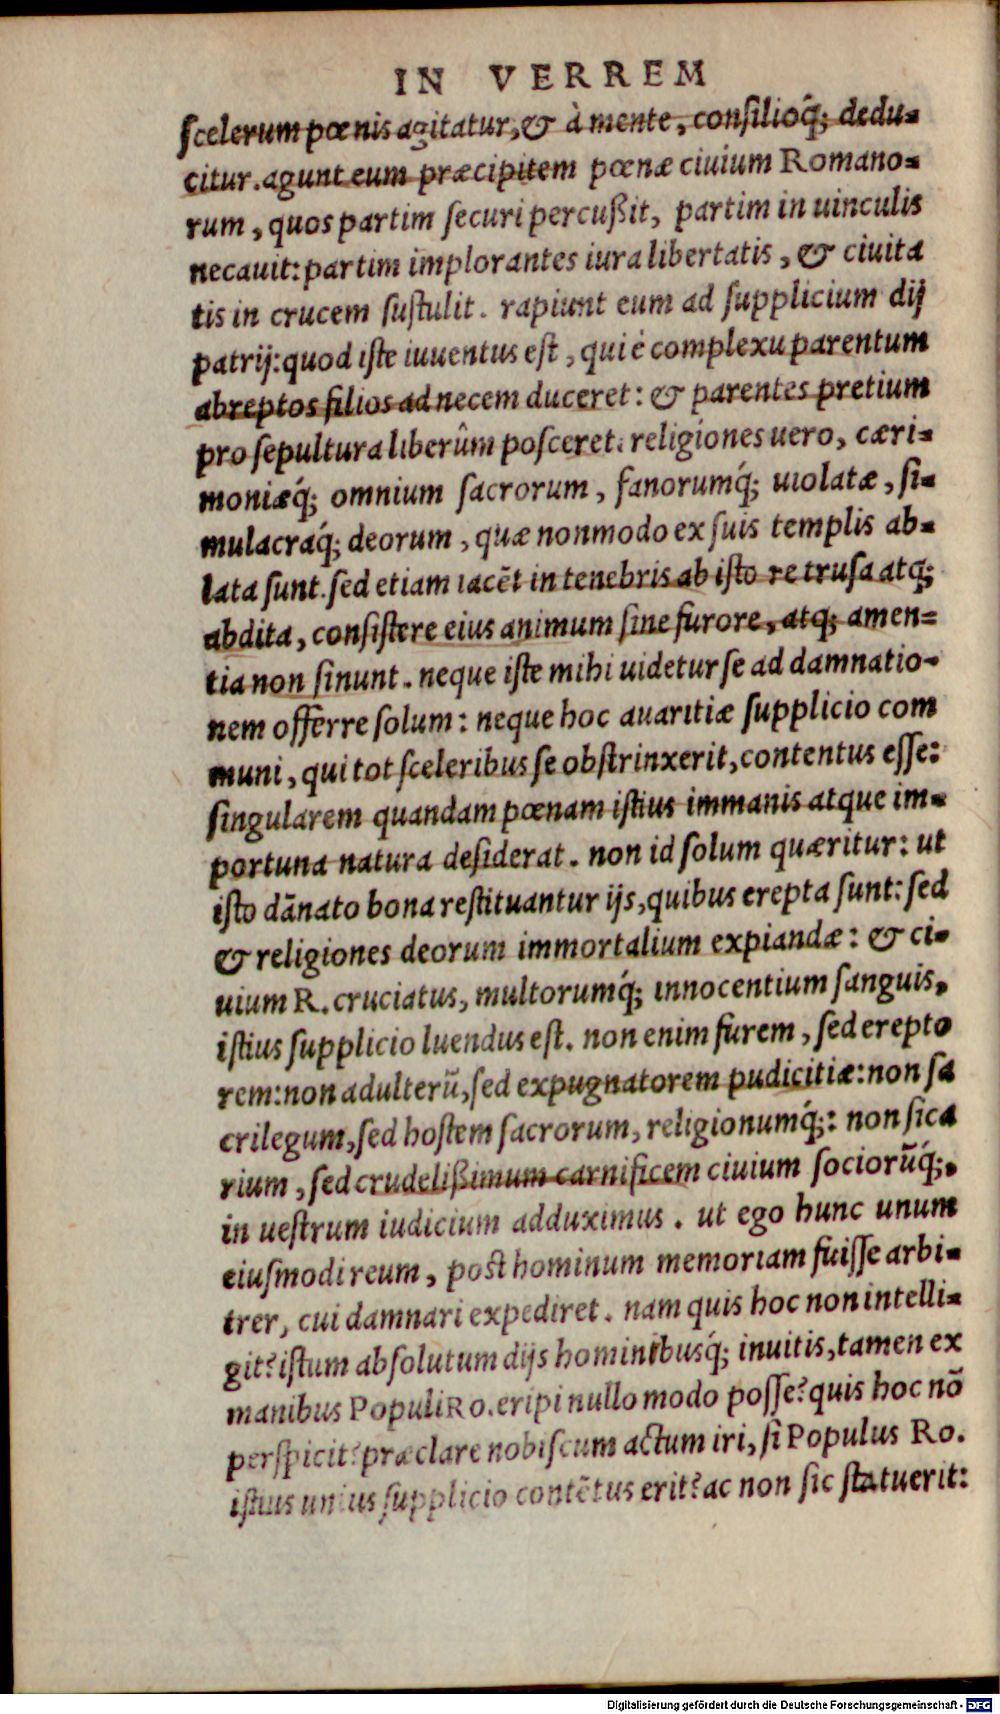 IN VERREM
ſcelerum pœnis agitatur, & à mente, conſilioq́; dedu-
citur. agunt eum præcipitem pœnæ ciuium Romano-
rum, quos partim ſecuri percußit, partim in uinculis
necauit: partim implorantes iura libertatis, & ciuita
tis in crucem ſuſtulit. rapiunt eum ad ſupplicium dij
patrij: quod iſte iuuentus eſt, qui è complexu parentum
abreptos filios ad necem duceret: & parentes pretium
pro ſepultura liberûm poſceret. religiones uero, cæri-
moniæq́; omnium ſacrorum, fanorumq́; uiolatæ, ſi-
mulacraq́; deorum, quæ nonmodo ex ſuis templis ab-
lata ſunt. ſed etiam iacēt in tenebris ab iſto retruſa atq;
abdita, conſiſtere eius animum ſine furore, atq; amen-
tia non ſinunt. neque iſte mihi uidetur ſe ad damnatio-
nem offerre ſolum: neque hoc auaritiæ ſupplicio com
muni, qui tot ſceleribus ſe obſtrinxerit, contentus eſſe:
ſingularem quandam pœnam iſtius immanis atque im-
portuna natura deſiderat. non id ſolum quæritur: ut
iſto dānato bona reſtituantur ijs, quibus erepta ſunt: ſed
& religiones deorum immortalium expiandæ: & ci-
uium R. cruciatus, multorumq́; innocentium ſanguis,
iſtius ſupplicio luendus eſt. non enim furem, ſed erepto
rem: non adulterū, ſed expugnatorem pudicitiæ: non ſa
crilegum, ſed hoſtem ſacrorum, religionumq́;: non ſica
rium, ſed crudelißimum carnificem ciuium ſociorūq́;,
in ueſtrum iudicium adduximus. ut ego hunc unum
eiuſmodi reum, poſt hominum memoriam fuiſſe arbi-
trer, cui damnari expediret. nam quis hoc non intelli-
git? iſtum abſolutum dijs hominibusq́; inuitis, tamen ex
manibus Populi Ro. eripi nullo modo poſſe? quis hoc nō
perſpicit? præclare nobiſcum actum iri, ſi Populus Ro.
iſtius unius ſupplicio contētus erit? ac non ſic ſtatuerit:
Digitalisierung gefördert durch die Deutsche Forschungsgemeinschaft - DFG